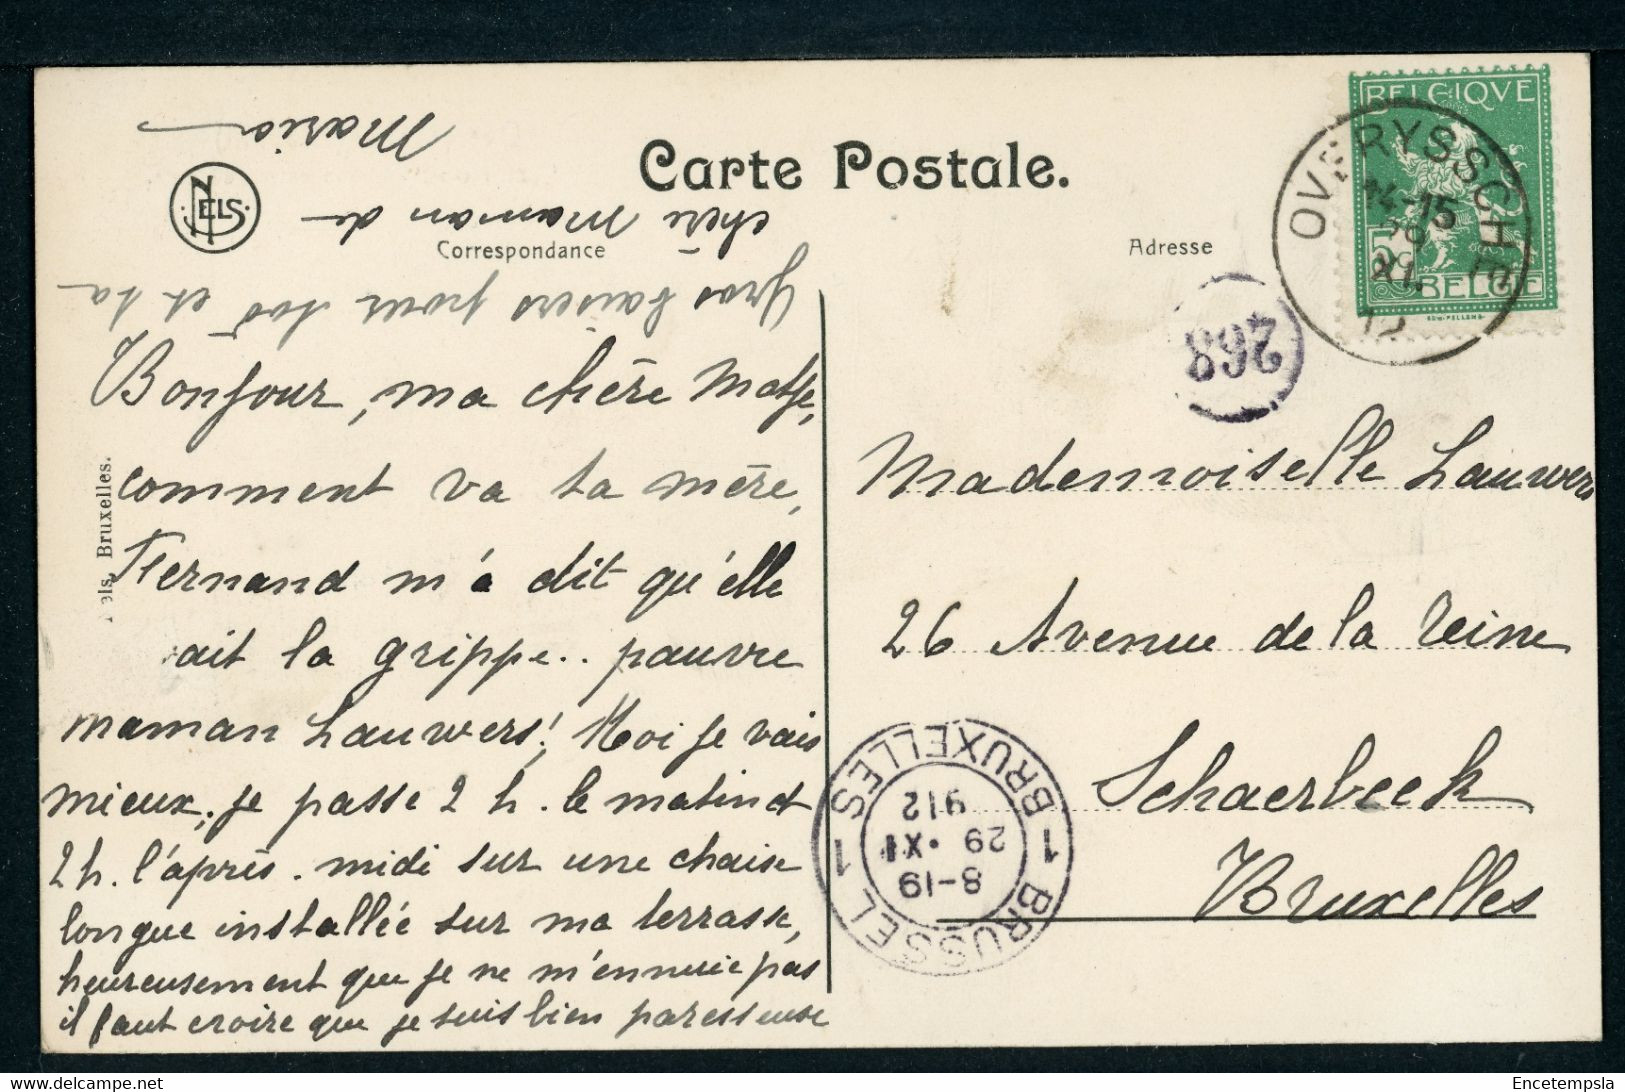 Carte Postale.
Correspondance
Adresse
NELS
Bruxelles.
Bonjour, ma chère
comment va ta mère,
Fernand m'a dit qu'elle
ait la grippe.. pauvre
maman Lauwers! Moi je vais
mieux, je passe 2 h. le matin et
2 h. l'après. midi sur une chaise
longue installée sur ma terrasse,
heureusement que je ne m'ennuie pas
il faut croire que je suis bien paresseuse
Gros baisers pour toi et ta
chère Maman de
Maria
Mademoiselle Lauwers
26 Avenue de la Reine
Schaerbeek
Bruxelles
BELGIQUE
5
BELGIE
OVERYSSCHE
14-15
29
XI.
12
268
BRUXELLES 1
1 BRUSSEL
8-19
29 •XI
912
www.delcampe.net
Encetempsla